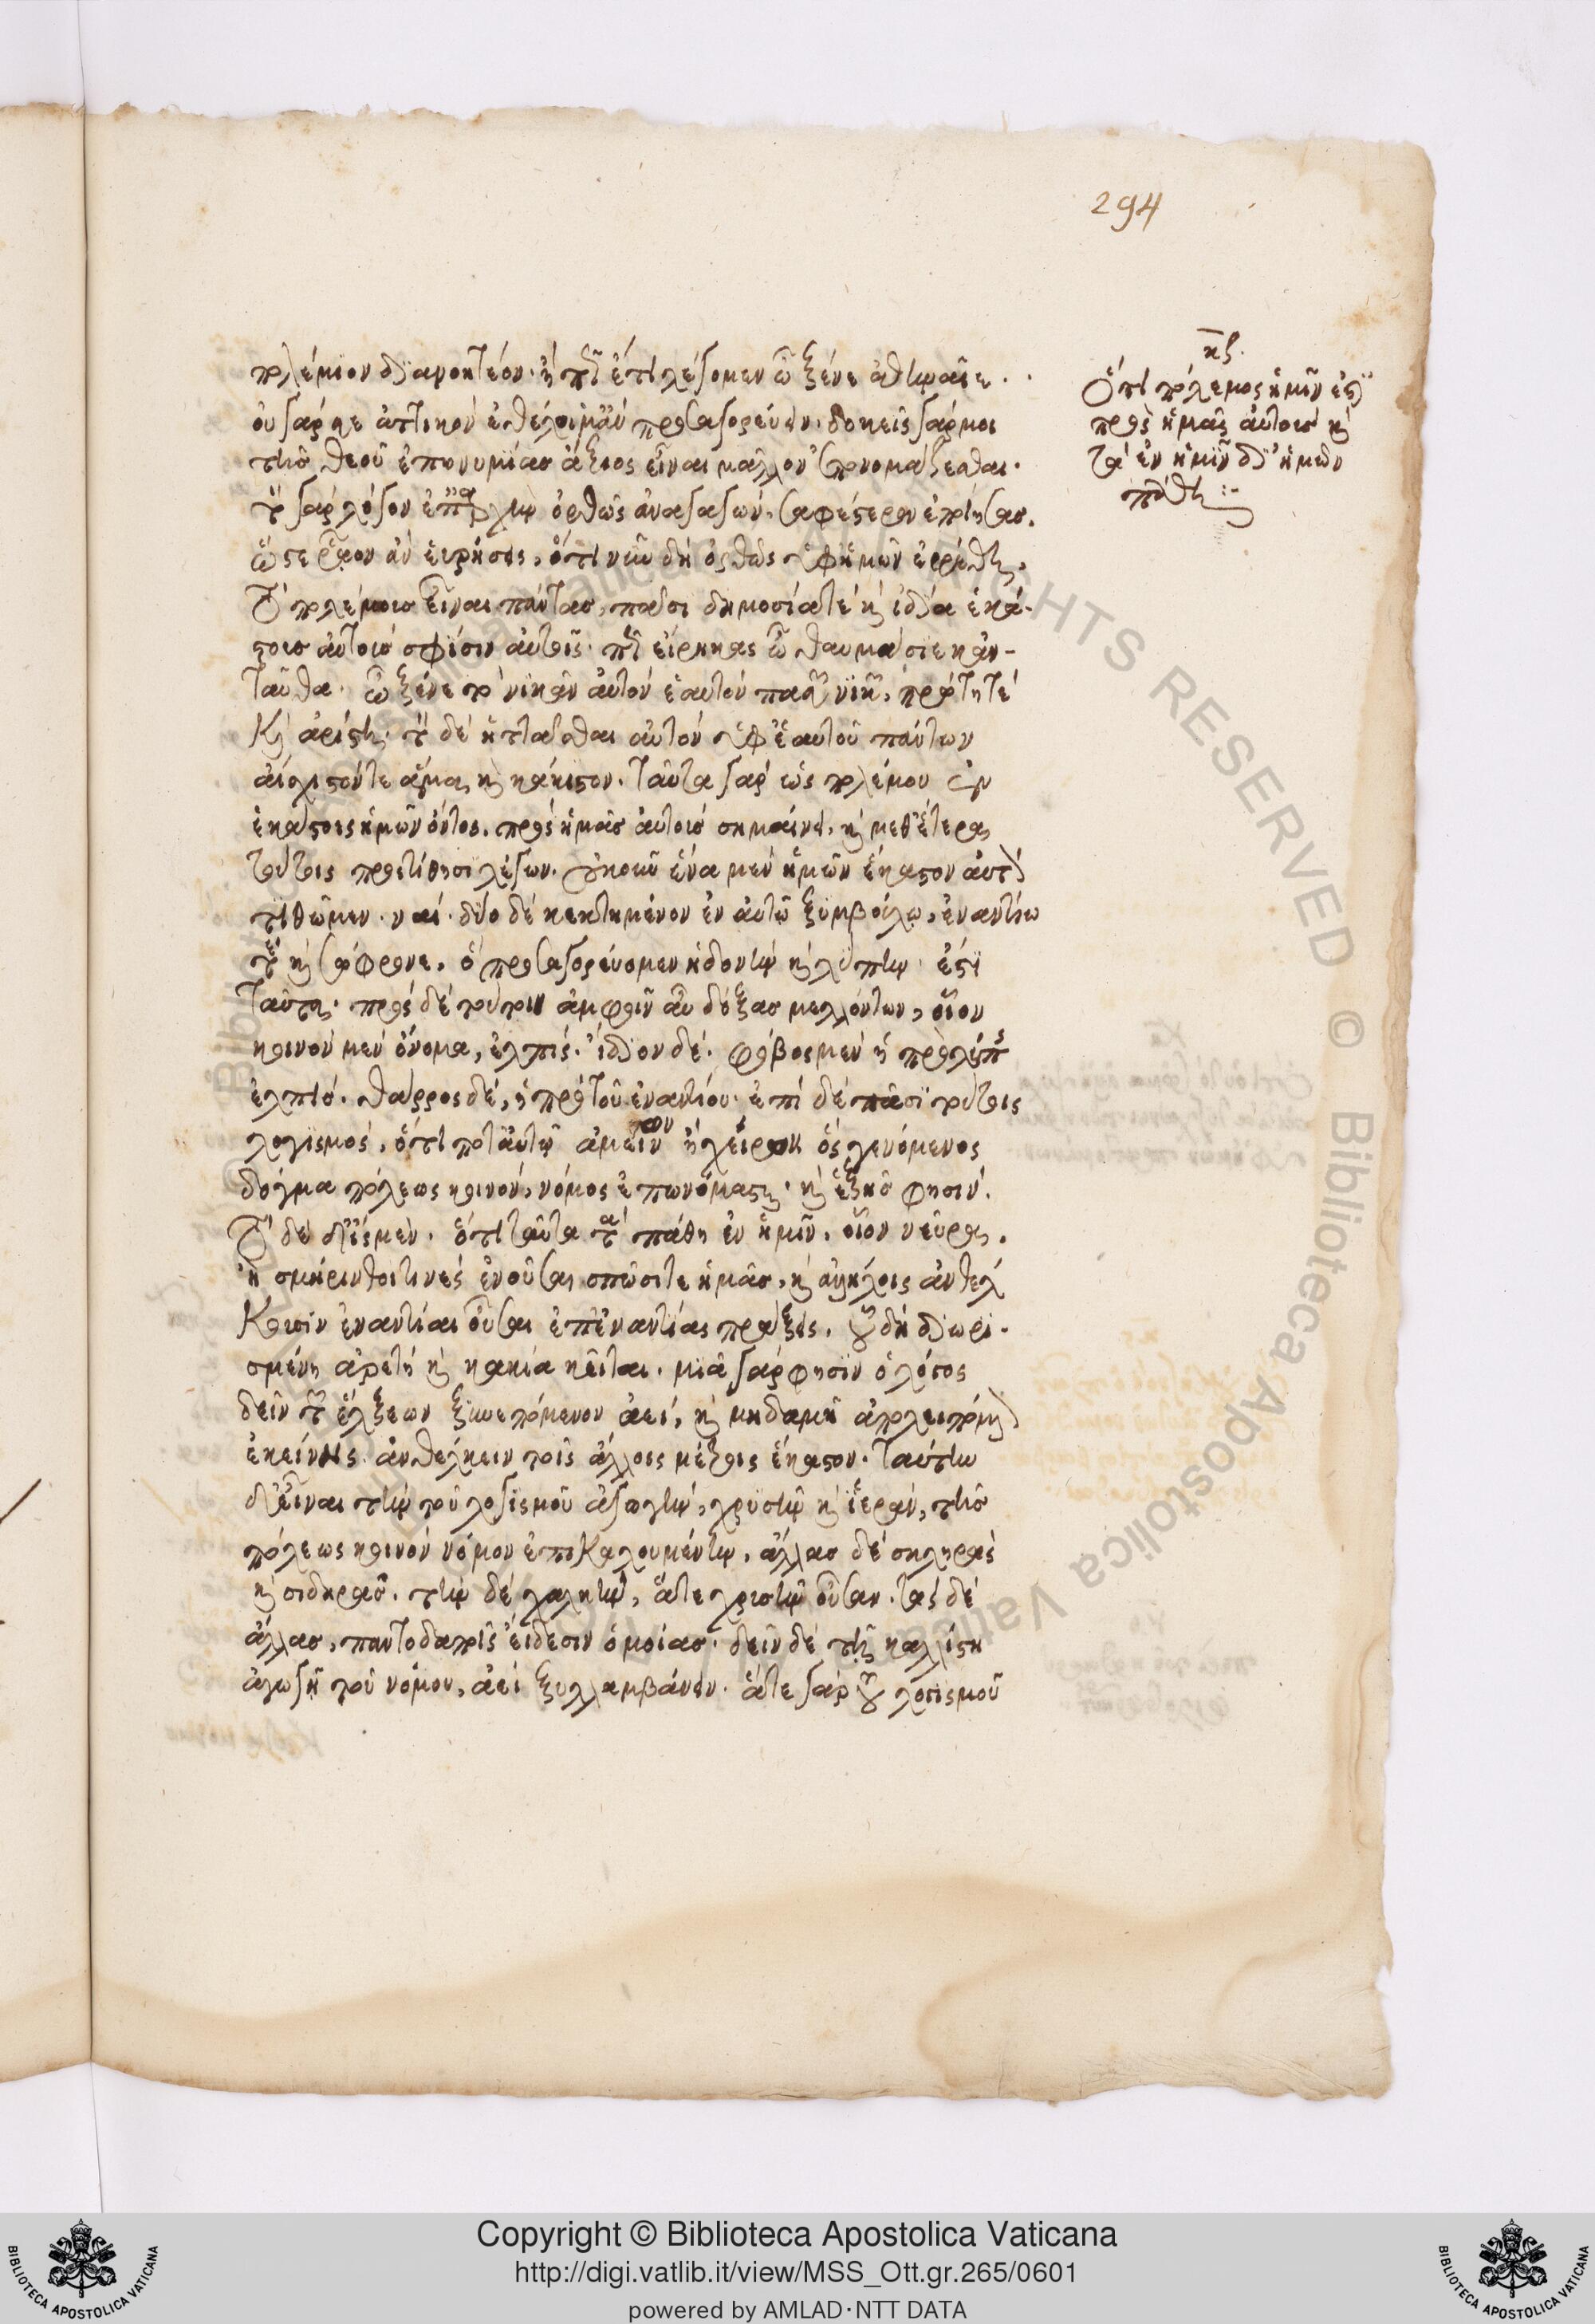 294
πολέμιον διανοητέον· ἢ πῶς ἔτι λέγομεν ὦ ξένε ἀθηναῖε·
οὐ γάρ σε ἀττικὸν ἐθέλοιμ' ἂν προσαγορεύειν. δοκεῖς γάρ μοι
τῆς θεοῦ ἐπωνυμίας ἄξιος εἶναι μᾶλλον ἐπονομάζεσθαι·
τὸν γὰρ λόγον ἐπ' ἀρχὴν ὀρθῶς ἀναγαγὼν, σαφέστερον ἐποίησας.
ὥστε ῥᾷον ἀνευρήσεις, ὅτι νῦν δὴ ὀρθῶς ὑφ' ἡμῶν ἐρρήθη.
τὸ πολεμίους εἶναι πάντας, πᾶσι δημοσίᾳ τὲ καὶ ἰδίᾳ ἑκά-
στους αὐτοὺς σφίσιν αὐτοῖς· πῶς εἴρηκας ὦ θαυμάσιε κἀν-
ταῦθα· ὦ ξένε τὸ νικᾶν αὐτὸν ἑαυτὸν πασῶν νικῶν, πρώτη τὲ
καὶ ἀρίστη· τὸ δὲ ἡττᾶσθαι αὐτὸν ὑφ' ἑαυτοῦ πάντων
αἴσχιστόν τε ἅμα καὶ κάκιστον. ταῦτα γὰρ ὡς πολέμου ἐν
ἑκάστοις ἡμῶν ὄντος, πρὸς ἡμᾶς αὐτοὺς σημαίνει. καὶ μεθ' ἕτερα
τούτοις προστίθησι λέγων. οὐκοῦν ἕνα μὲν ἡμῶν ἕκαστον αὐτὸν
τιθῶμεν· ναί· δύο δὲ κεκτημένον ἐν αὐτῷ ξυμβούλω, ἐναντίω
τὲ καὶ ἄφρονε, ὃ προσαγορεύομεν ἡδονὴν καὶ λύπην· ἔστι
ταῦτα· πρὸς δὲ τούτοιν ἀμφοῖν αὖ δόξας μελλόντων, οἷον
κοινὸν μὲν ὄνομα, ἐλπίς· ἴδιον δὲ· φόβος μὲν ἡ πρὸ λύπης
ἐλπίς· θάρρος δὲ, ἡ πρὸ τοῦ ἐναντίου· ἐπὶ δὲ πᾶσι τούτοις
λογισμὸς, ὅτι ποτ' αὐτῶν ἄμεινον ἢ χεῖρον ὃς γενόμενος
δόγμα πόλεως κοινὸν, νόμος ἐπωνόμασται· καὶ ἑξῆς φησίν·
τόδε δὲ ἴσμεν· ὅτι ταῦτα τὰ πάθη ἐν ἡμῖν, οἷον νεῦρα,
ἢ σμήρινθοί τινες ἐνοῦσαι σπῶσί τε ἡμᾶς, καὶ ἀλλήλοις ἀνθέλ-
κουσιν ἐναντίαι οὖσαι ἐπ' ἐναντίας πράξεις, οὗ δὴ διωρι-
σμένη ἀρετὴ καὶ κακία κεῖται. μιᾷ γὰρ φησὶν ὁ λόγος
δεῖν τῶν ἕλξεων ξυνεπόμενον ἀεὶ, καὶ μηδαμῇ ἀπολειπόμενον
ἐκείνης ἀνθέλκειν τοῖς ἄλλοις νεύροις ἕκαστον· ταύτην
δ' εἶναι τὴν τοῦ λογισμοῦ ἀγωγὴν, χρυσῆν καὶ ἱερὰν, τῆς
πόλεως κοινὸν νόμον ἐπικαλουμένην, ἄλλας δὲ σκληρὰς
καὶ σιδηρᾶς. τὴν δὲ μαλακὴν, ἅτε χρυσῆν οὖσαν. τὰς δὲ
ἄλλας, παντοδαποῖς εἴδεσιν ὁμοίας· δεῖν δὲ τῇ καλλίστῃ
ἀγωγῇ τοῦ νόμου, ἀεὶ ξυλλαμβάνειν. ἅτε γὰρ τοῦ λογισμοῦ
κϛ.
Ὅτι πόλεμος ἡμῖν ἐστὶ
πρὸς ἡμᾶς αὐτοὺς καὶ
τὰ ἐν ἡμῖν δι' ἡμῶν
πάθη :-
Copyright © Biblioteca Apostolica Vaticana
http://digi.vatlib.it/view/MSS_Ott.gr.265/0601
powered by AMLAD·NTT DATA